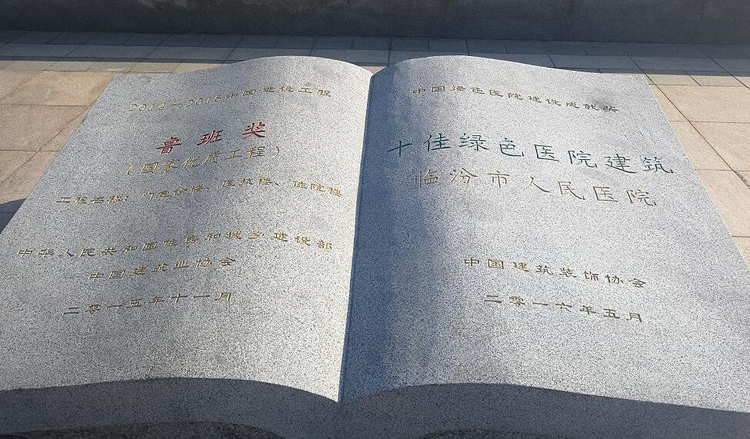 2014－2015中国建设工程
鲁班奖
（国家优质工程）
工程名称：门急诊楼、医技楼、住院楼
中华人民共和国住房和城乡建设部
中国建筑业协会
二零一五年十一月
中国绿色医院建设成就奖
十佳绿色医院建筑
临汾市人民医院
中国建筑装饰协会
二零一六年五月